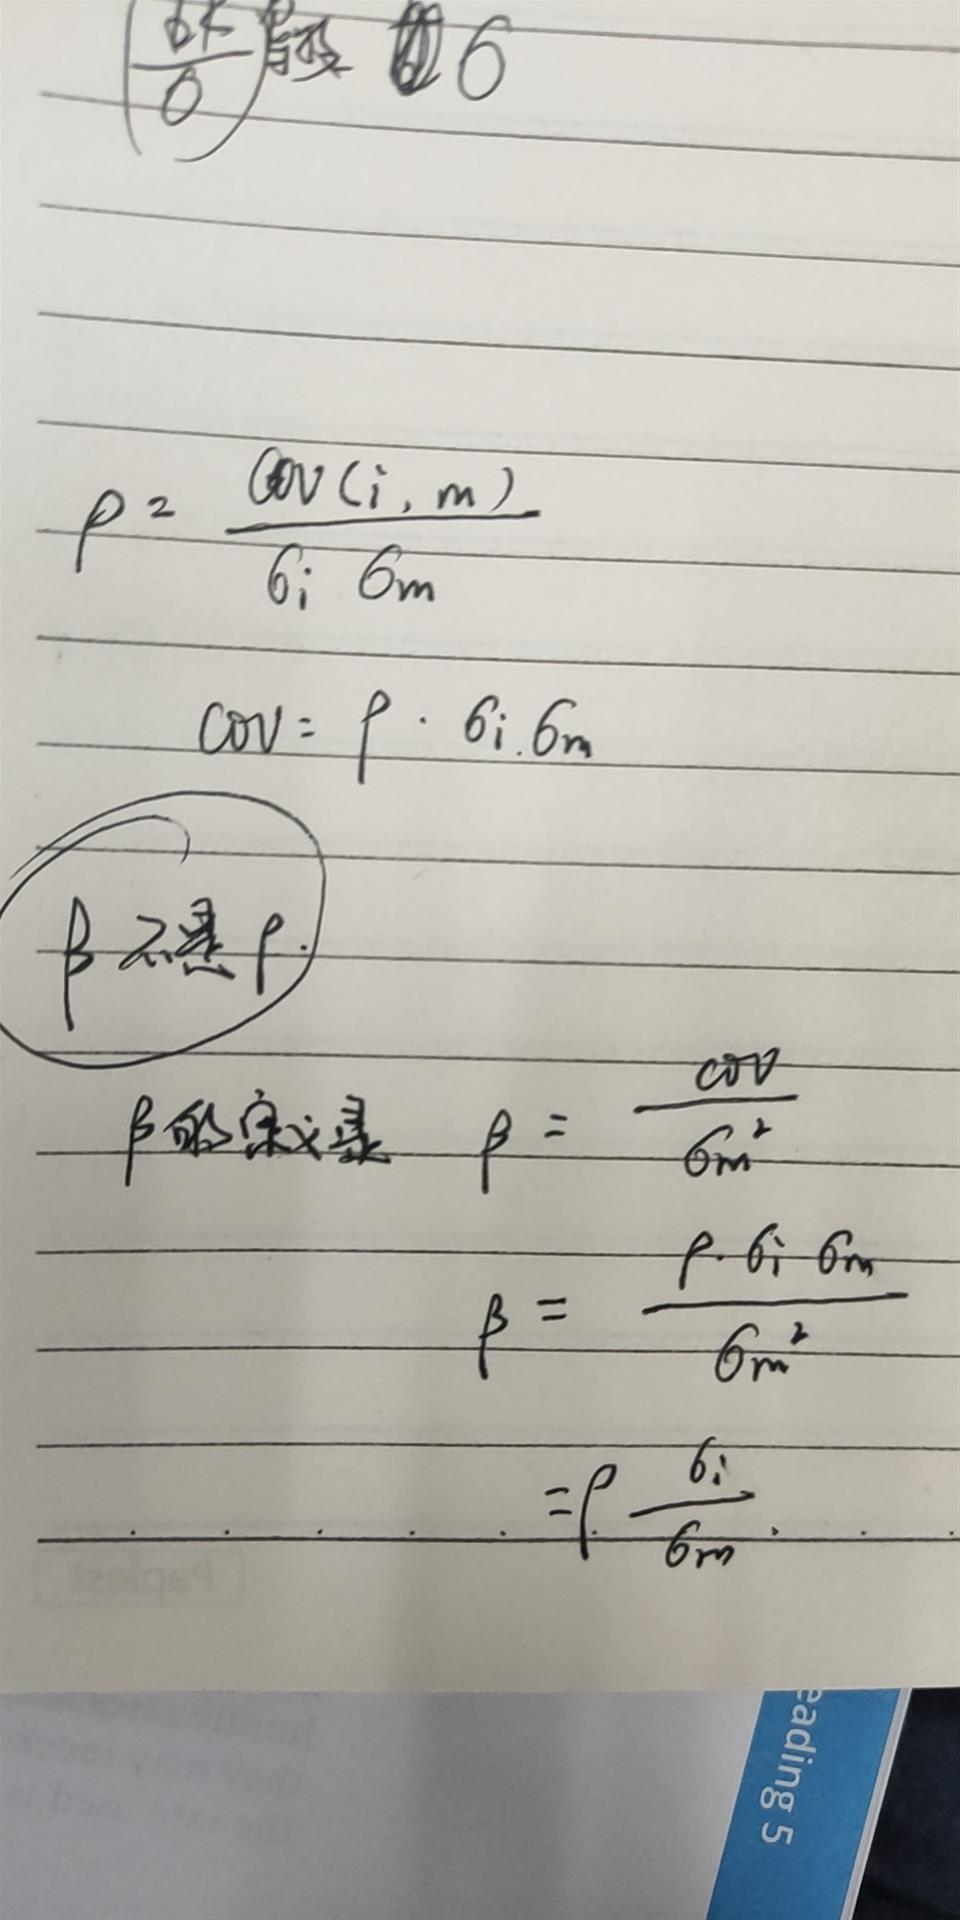 6
ρ = COV(i, m) / σi σm
COV = ρ · σi · σm
β 不是 ρ.
β 的定义是 β = COV / σm²
β = ρ · σi σm / σm²
= ρ σi / σm
Paplest
eading 5